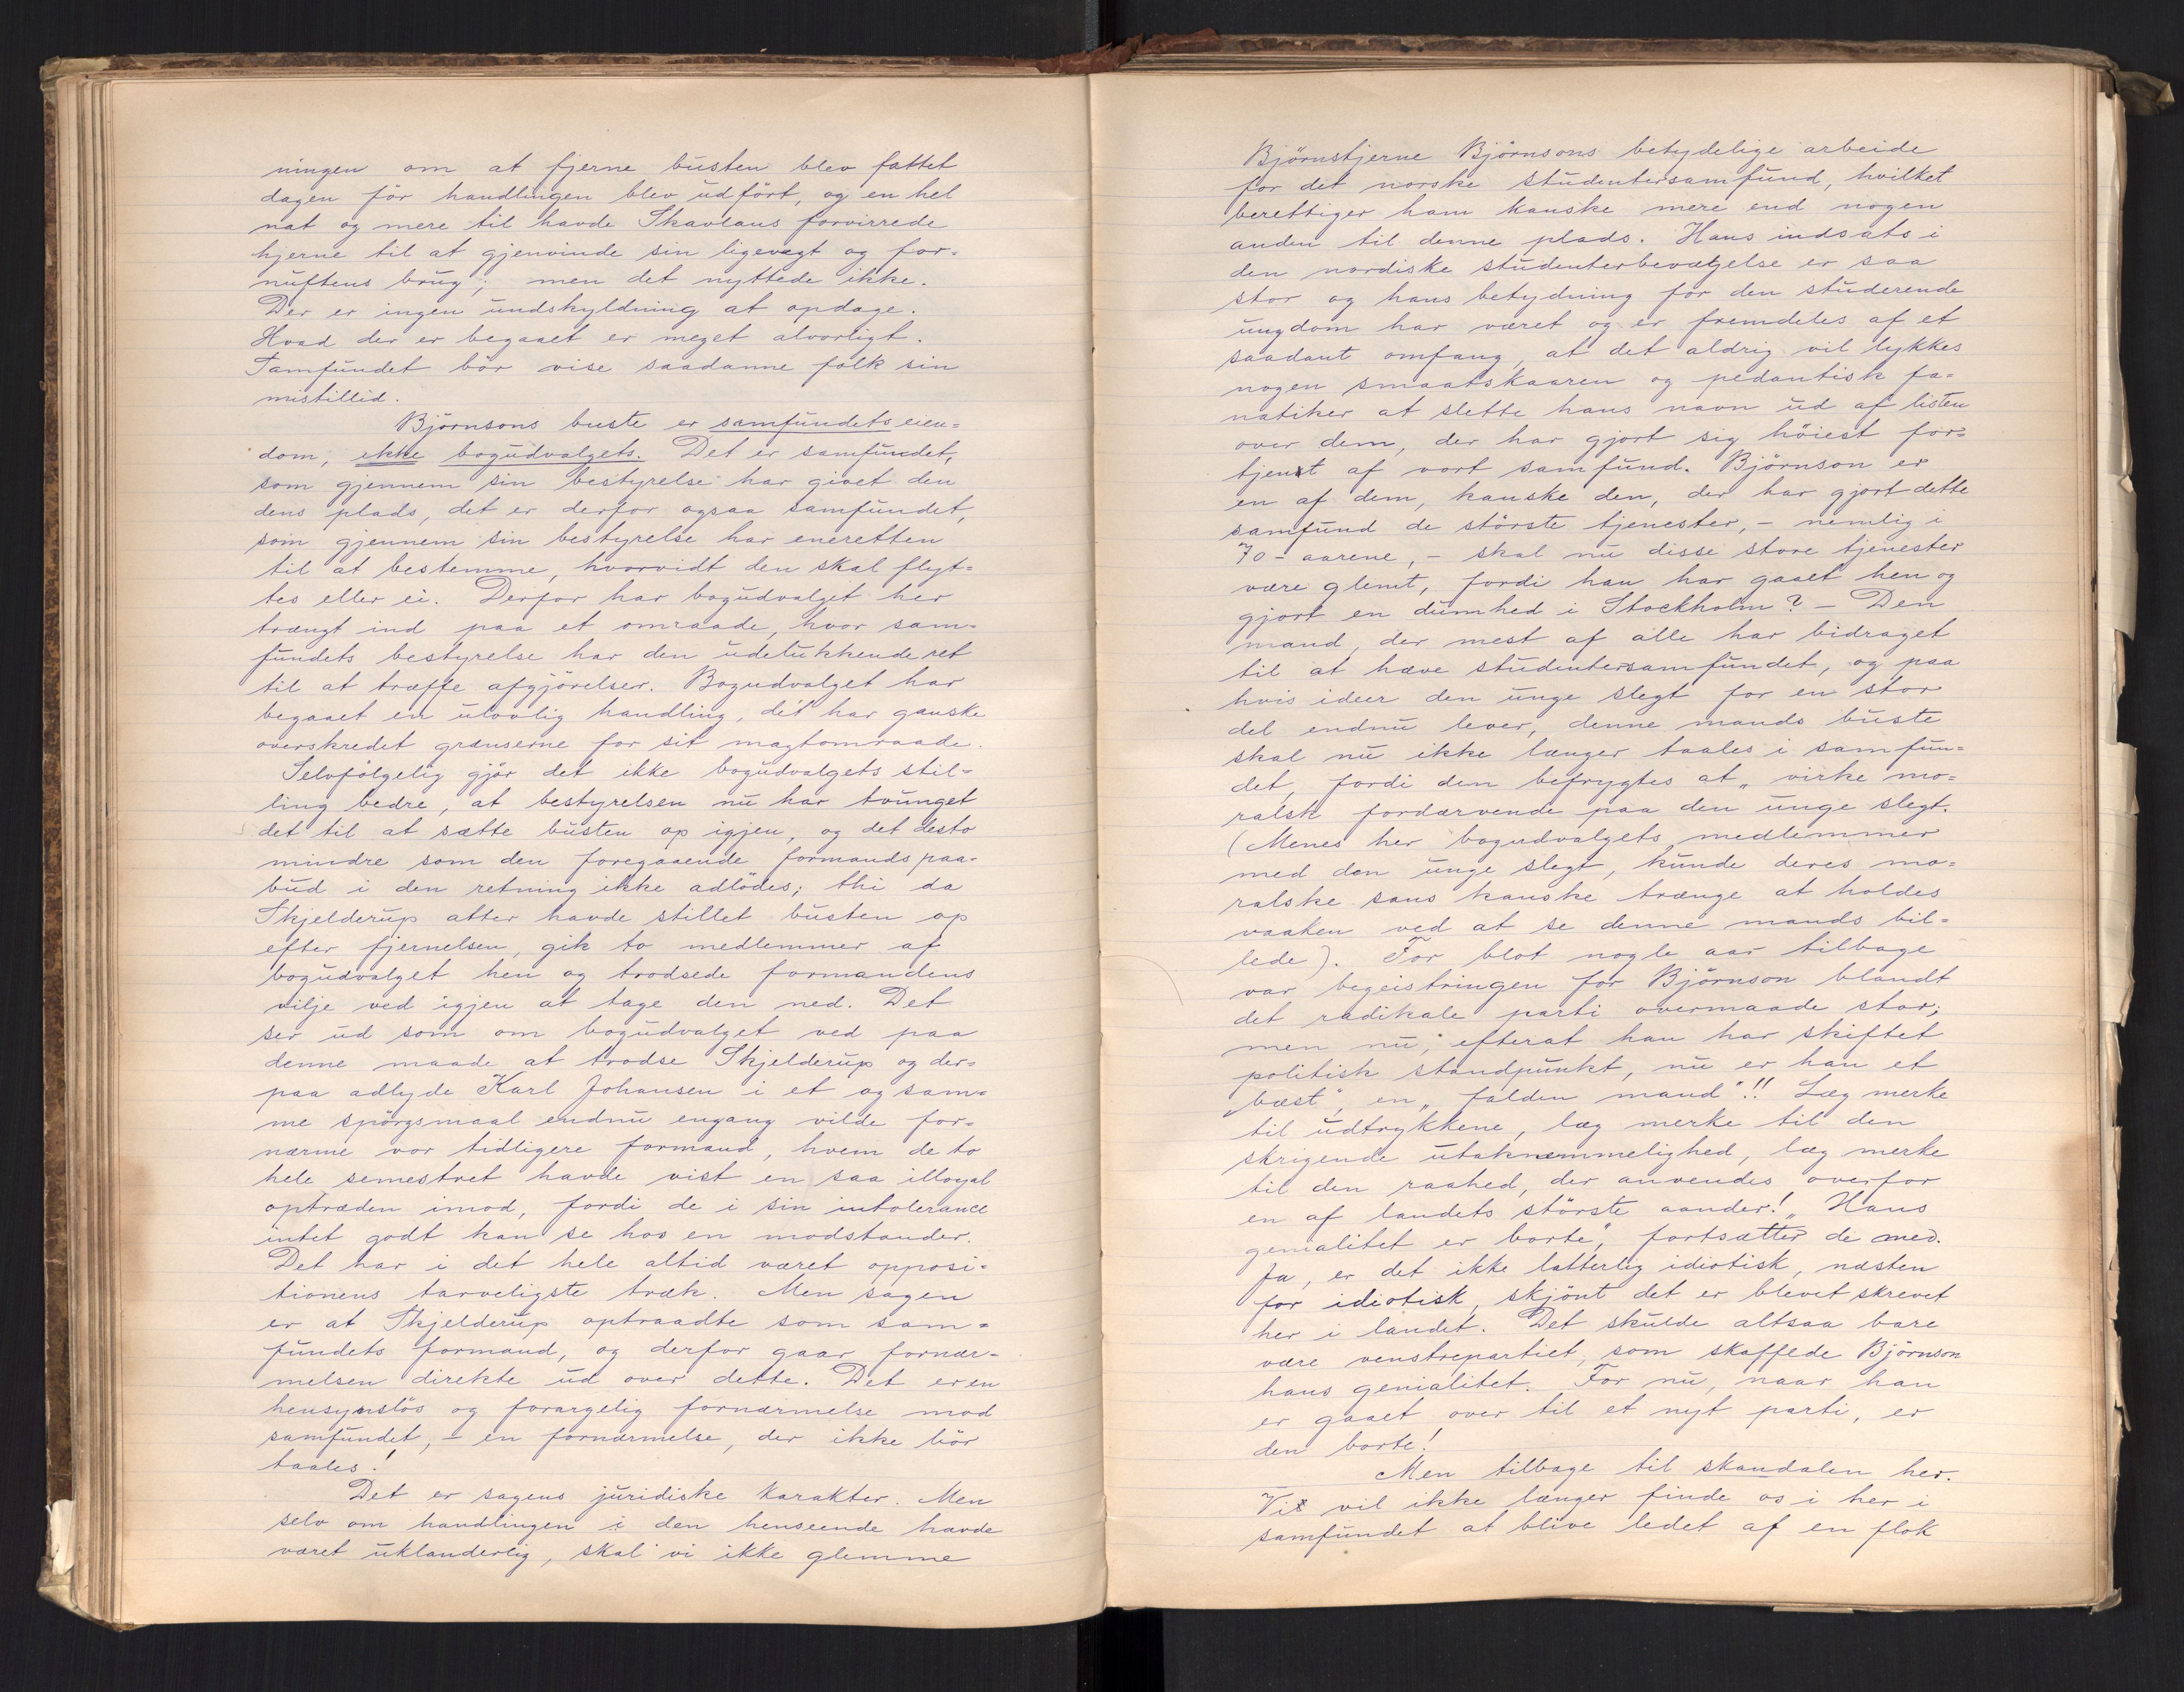 ningen om at fjerne busten blev fattet
dagen för handlingen blev udfört, og en hel
nat og mere til havde Skavlans forvirrede
hjerne til at gjenvinde sin ligevegt og for-
nuftens brug; men det nyttede ikke.
Der er ingen undskyldning at opdage.
Hvad der er begaaet er meget alvorligt.
Samfundet bör vise saadanne folk sin
mistillid.
Björnsons buste er samfundets eien-
dom, ikke bogudvalgets. Det er samfundet,
som gjennem sin bestyrelse har givet den
dens plads, det er derfor ogsaa samfundet,
som gjennem sin bestyrelse har eneretten
til at bestemme, hvorvidt den skal flyt-
tes eller ei. Derfor har bogudvalget her
trængt ind paa et omraade, hvor sam-
fundets bestyrelse har den udelukkende ret
til at træffe afgjörelser. Bogudvalget har
begaaet en ulovlig handling, det har ganske
overskredet grænserne for sit magtomraade.
Selvfölgelig gjör det ikke bogudvalgets stil-
ling bedre, at bestyrelsen nu har tvunget
det til at sætte busten op igjen, og det desto
mindre som den foregaaende formands paa-
bud i den retning ikke adlödes; thi da
Skjelderup atter havde stillet busten op
efter fjernelsen, gik to medlemmer af
bogudvalget hen og trodsede formandens
vilje ved igjen at tage den ned. Det
ser ud som om bogudvalget ved paa
denne maade at trodse Skjelderup og der-
paa adlyde Karl Johansen i et og sam-
me spörgsmaal endnu engang vilde for-
nærme vor tidligere formand, hvem de to
hele semestret havde vist en saa illoyal
optræden imod, fordi de i sin intolerance
intet godt kan se hos en modstander.
Det har i det hele altid været opposi-
tionens tarveligste træk. Men sagen
er at Skjelderup optraadte som sam-
fundets formand, og derfor gaar fornær-
melsen direkte ud over dette. Det er en
hensynslös og forargelig fornærmelse mod
samfundet, – en fornærmelse, der ikke bör
taales!
Det er sagens juridiske karakter. Men
selv om handlingen i den henseende havde
været uklanderlig, skal vi ikke glemme
Björnstjerne Björnsons betydelige arbeide
for det norske studentersamfund, hvilket
berettiger ham kanske mere end nogen
anden til denne plads. Hans indsats i
den nordiske studenterbevægelse er saa
stor og hans betydning for den studerende
ungdom har været og er fremdeles af et
saadant omfang, at det aldrig vil lykkes
nogen smaatskaaren og pedantisk fa-
natiker at slette hans navn ud af listen
over dem, der har gjort sig höiest for-
tjent af vort samfund. Björnson er
en af dem, kanske den, der har gjort dette
samfund de störste tjenester, – nemlig i
70-aarene, – skal nu disse store tjenester
være glemt, fordi han har gaaet hen og
gjort en dumhed i Stockholm? – Den
mand, der mest af alle har bidraget
til at hæve studentersamfundet, og paa
hvis ideer den unge slegt for en stor
del endnu lever, denne mands buste
skal nu ikke længer taales i samfun-
det, fordi den befrygtes at „virke mo-
ralsk fordærvende paa den unge slegt.
(Menes her bogudvalgets medlemmer
med den unge slegt, kunde deres mo-
ralske sans kanske trænge at holdes
vaaken ved at se denne mands bil-
lede). For blot nogle aar tilbage
var begeistringen for Björnson blandt
det radikale parti overmaade stor;
men nu, efterat han har skiftet
politisk standpunkt, nu er han et
„bæst“, en „falden mand“!! Læg merke
til udtrykkene, læg merke til den
skrigende utaknemmelighed, læg merke
til den raahed, der anvendes overfor
en af landets störste aander! „Hans
genialitet er borte“, fortsætter de med.
Ja, er det ikke latterlig idiotisk, næsten
for idiotisk, skjönt det er blevet skrevet
her i landet. Det skulde altsaa bare
være venstrepartiet, som skaffede Björnson
hans genialitet. For nu, naar han
er gaaet over til et nyt parti, er
den borte!
Men tilbage til skandalen her.
Vi vil ikke længer finde os i her i
samfundet at blive ledet af en flok